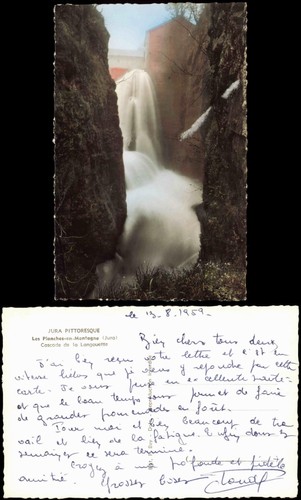 le 13.8.1959.
JURA PITTORESQUE
Les Planches-en-Montagne (Jura)
Cascade de la Langouette
Bien chers tous deux,
J'ai bien reçu votre lettre et c'est en
vitesse hélas que je viens y répondre par cette
carte. Je vous pense en excellente santé
et que le beau temps vous permet de faire
de grandes promenades en forêt.
Pour moi et bien beaucoup de tra
vail et bien de la fatigue. Enfin dans
semaines ce sera terminé.
Croyez à ma profonde et fidèle
amitié. Grosses bises